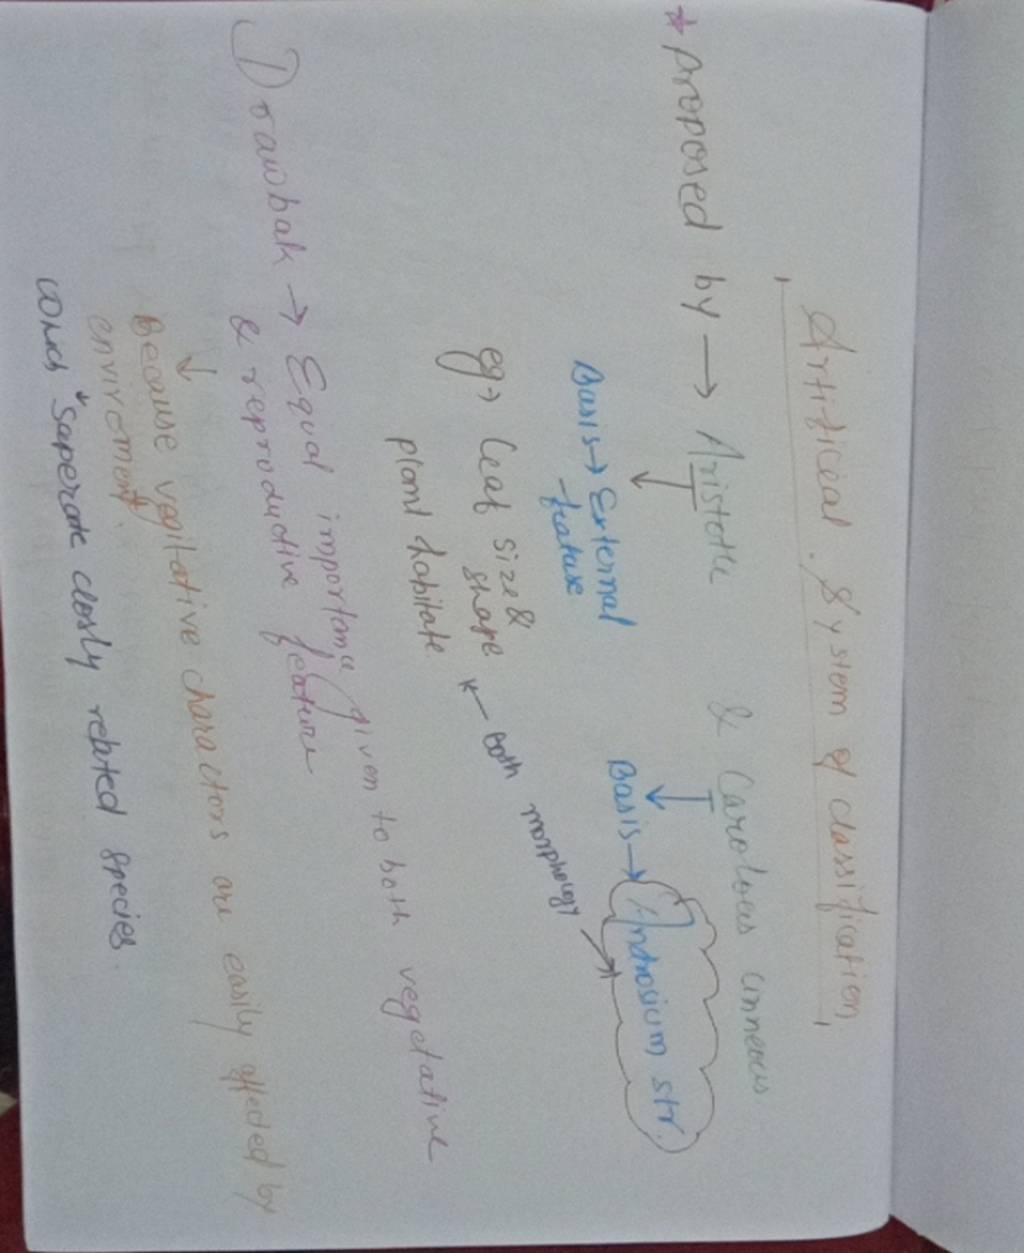 Artificeal System of classification
* proposed by → Aristotle & Carolous linneous
Basis → External
feature
Basis → Androsium str.
eg → leaf size &
shape
plant habitate
Both morphology
Drawbak → Equal importance given to both vegetative
& reproductive feature
Because vegitative charactors are easily affected by
envirement.
Saperate closly related species.